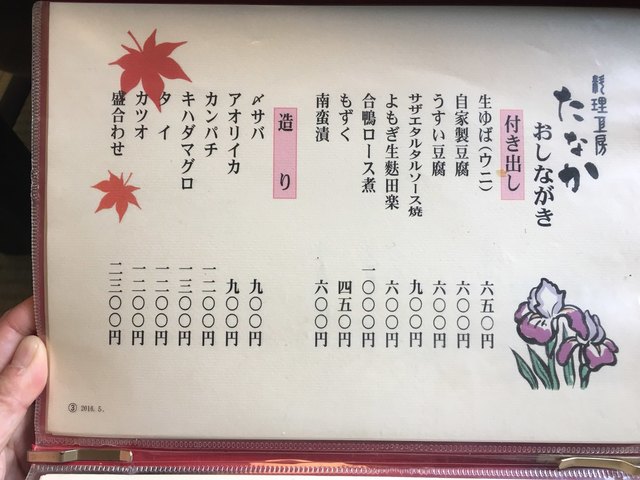 料理工房
たなか
おしながき
付き出し
生ゆば(ウニ) 六五〇円
自家製豆腐 六〇〇円
うすい豆腐 六〇〇円
サザエタルタルソース焼 九〇〇円
よもぎ生麩田楽 六〇〇円
合鴨ロース煮 一〇〇〇円
もずく 四五〇円
南蛮漬 六〇〇円
造り
〆サバ 九〇〇円
アオリイカ 九〇〇円
カンパチ 一二〇〇円
キハダマグロ 一三〇〇円
タイ 一二〇〇円
カツオ 一二〇〇円
盛合わせ 二三〇〇円
③ 2016.5.